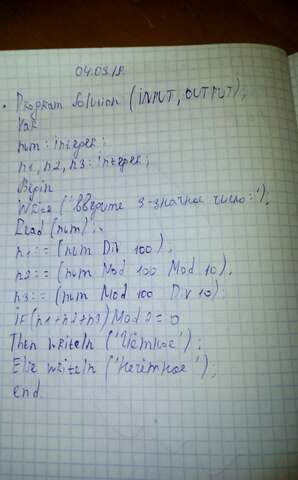 04.09.18.
Program Solution (INPUT, OUTPUT);
Var
num: integer;
n1, n2, n3: integer;
Begin
Write ('Введите 3-значное число:');
Read (num);
n1:= (num Div 100);
n2:= (num Mod 100 Mod 10);
n3:= (num Mod 100 Div 10);
if (n1+n2+n3) Mod 2 = 0
Then writeln ('Чётное');
Else writeln ('Нечётное');
end.